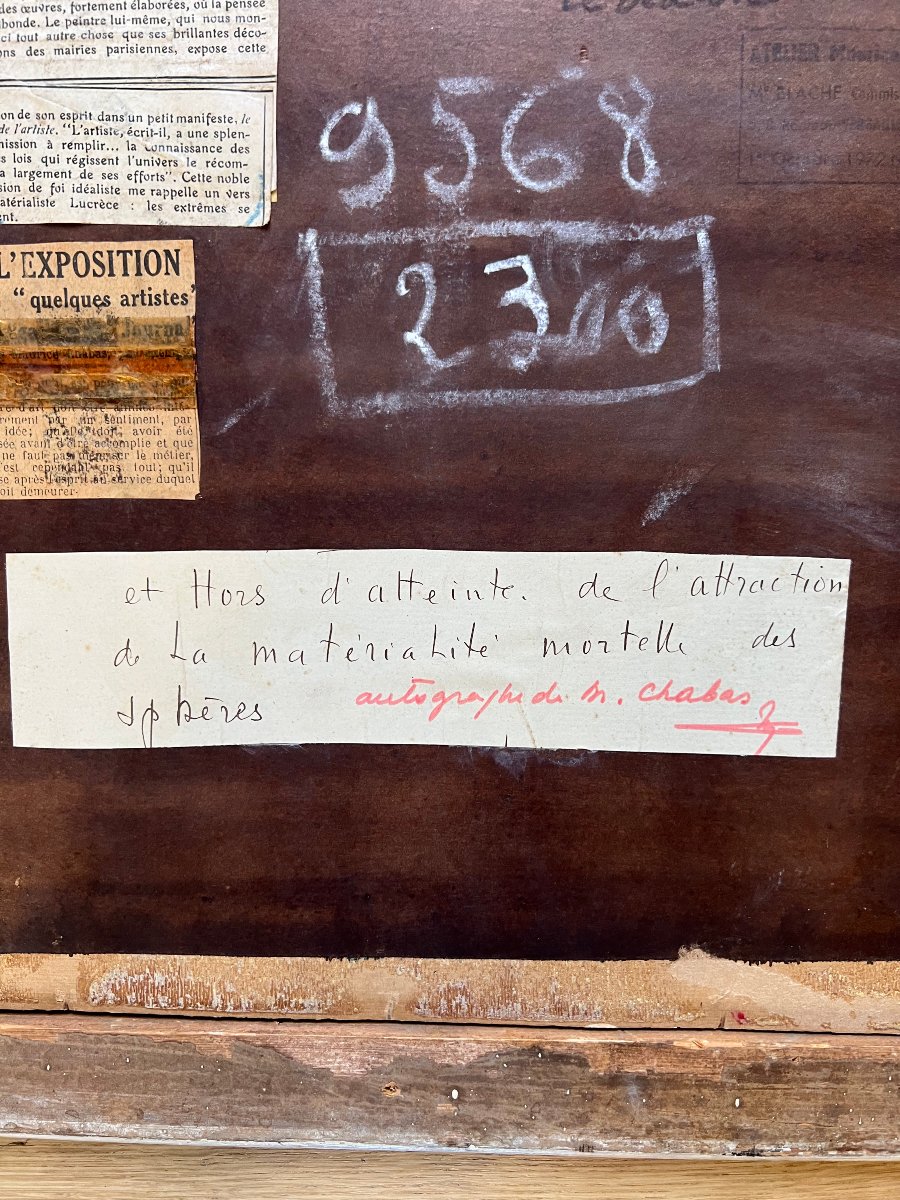 des œuvres, fortement élaborées, où la pensée
bonde. Le peintre lui-même, qui nous mon-
ci tout autre chose que ses brillantes déco-
ns des mairies parisiennes, expose cette
on de son esprit dans un petit manifeste, le
de l'artiste. "L'artiste, écrit-il, a une splen-
mission à remplir... la connaissance des
s lois qui régissent l'univers le récom-
a largement de ses efforts". Cette noble
sion de foi idéaliste me rappelle un vers
atérialiste Lucrèce : les extrêmes se
ent.
L'EXPOSITION
"quelques artistes"
Journal
Maurice Chabas,
rement par un sentiment, par
idée; qu'elle doit, avoir été
sée avant d'être accomplie et que
ne faut pas mépriser le métier,
'est cependant pas tout; qu'il
se après l'esprit au service duquel
oit demeurer.
9568
2300
ATELIER Maurice
Me BLACHE Commis
et Hors d'atteinte. de l'attraction
de La matérialité mortelle des
sphères autographe de M. Chabas